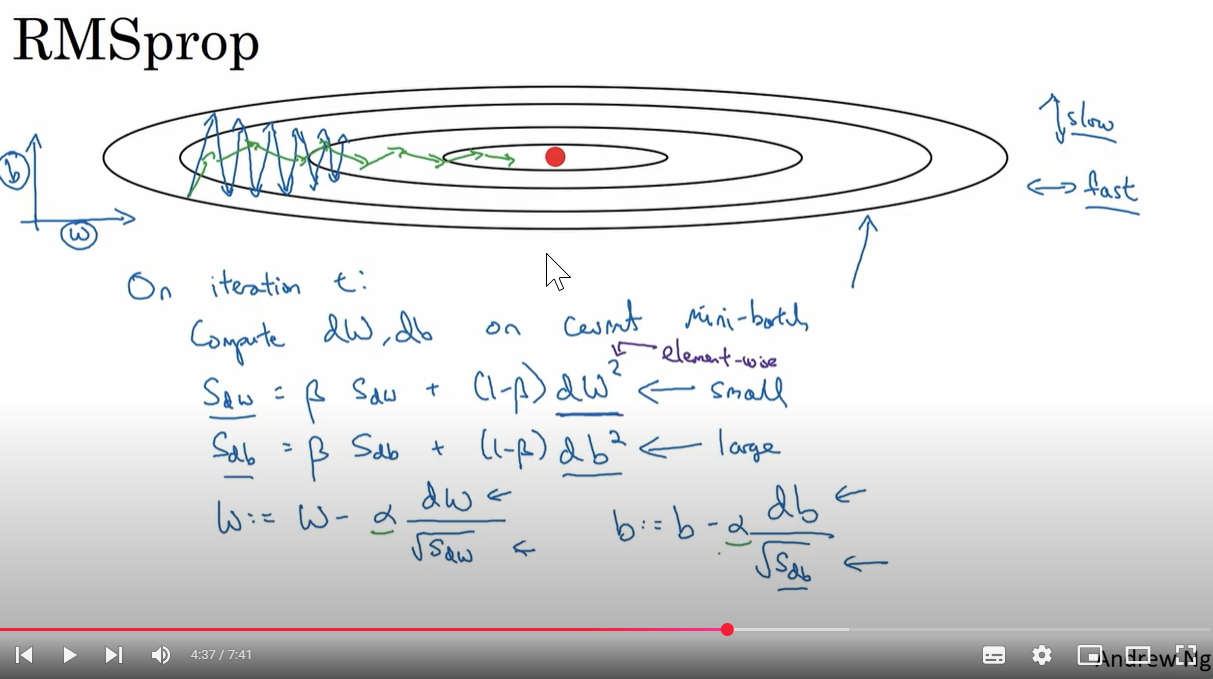 RMSprop
b
w
slow
fast
On iteration t:
Compute dW, db on current mini-batch
element-wise
Sdw = β Sdw + (1-β) dW² ← small
Sdb = β Sdb + (1-β) db² ← large
W := W - α dW / √Sdw    b := b - α db / √Sdb
4:37 / 7:41
Andrew Ng